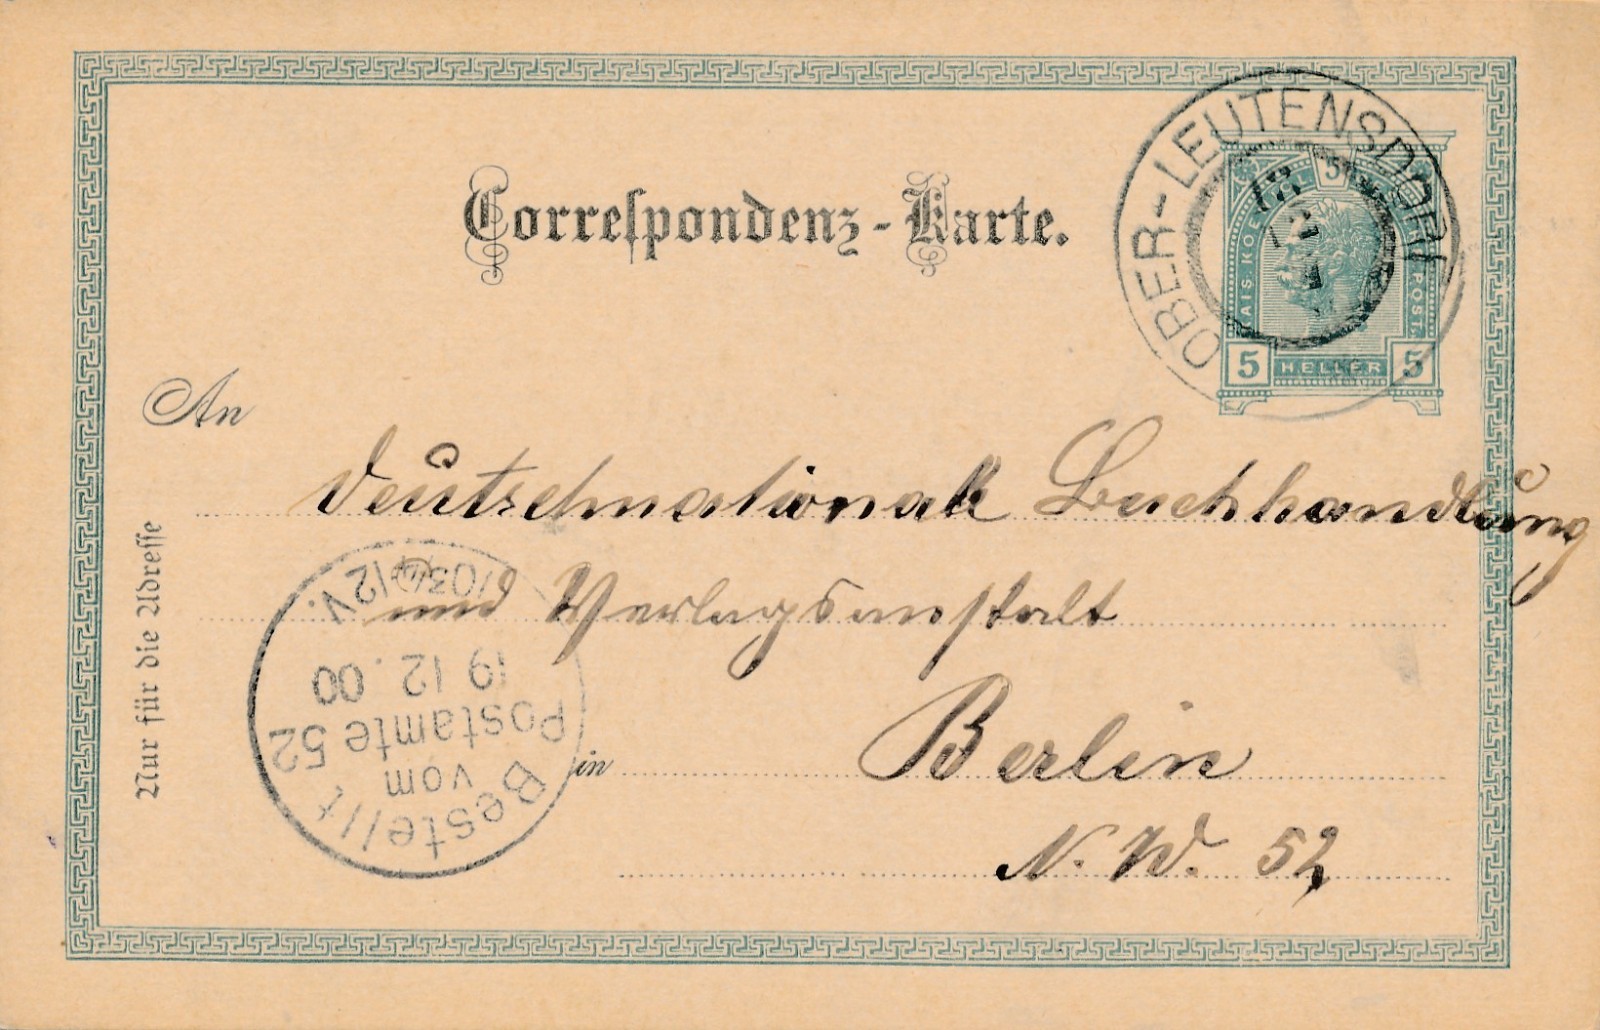 Correspondenz-Karte.
OBER-LEUTENSDORF
5
KAIS. KOE
POST.
5 HELLER 5
An
Deutschnationale Buchhandlung
und Verlagsanstalt
in Berlin
N. W. 52
Nur für die Adresse
Bestellt
vom
Postamte 52
19 12. 00
12V.